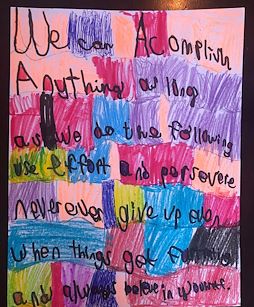 We can Acomplish
Anything as long
as we do the following
use effort and persevere
never ever give up even
when things get
and always beleve in yourself.